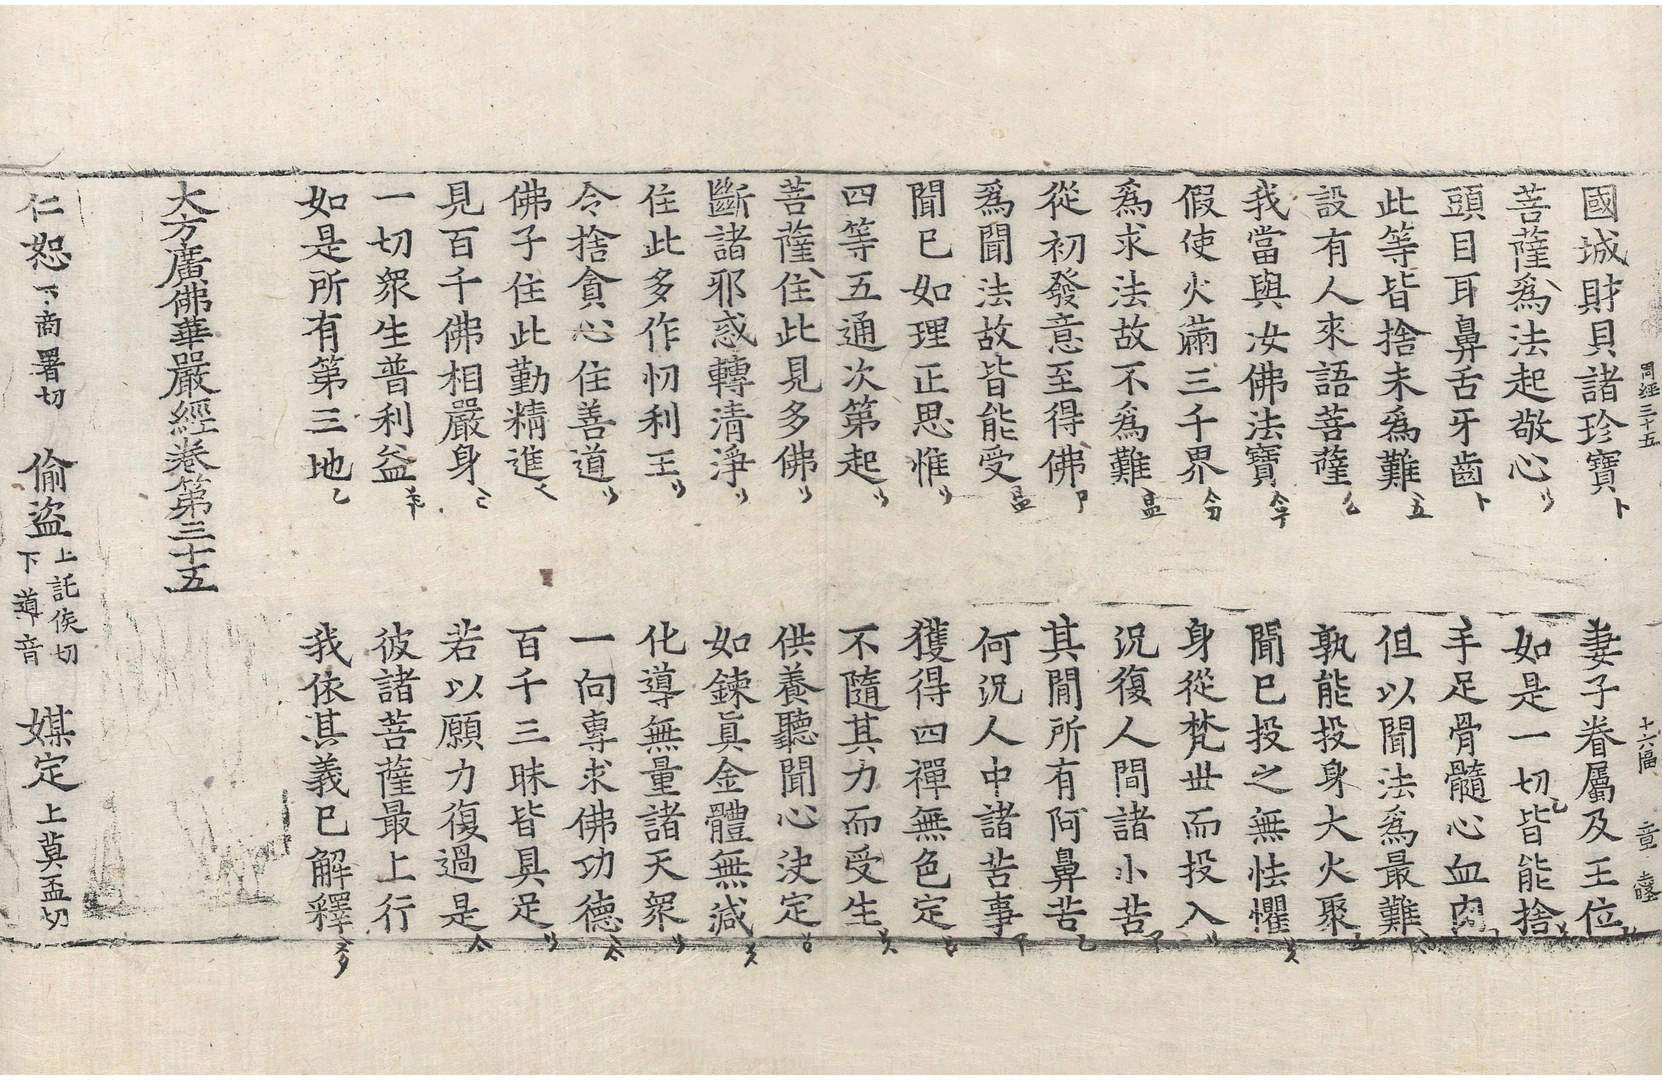 國城財貝諸珍寶 妻子眷屬及王位
菩薩爲法起敬心 如是一切皆能捨
頭目耳鼻舌牙齒 手足骨髓心血肉
此等皆捨未爲難 但以聞法爲最難
設有人來語菩薩 孰能投身大火聚
我當與汝佛法寶 聞已投之無怯懼
假使火滿三千界 身從梵世而投入
爲求法故不爲難 況復人間諸小苦
從初發意至得佛 其間所有阿鼻苦
爲聞法故皆能受 何況人中諸苦事
聞已如理正思惟 獲得四禪無色定
四等五通次第起 不隨其力而受生
菩薩住此見多佛 供養聽聞心決定
斷諸邪惑轉清淨 如鍊眞金體無減
住此多作忉利王 化導無量諸天眾
令捨貪心住善道 一向專求佛功德
佛子住此勤精進 百千三昧皆具足
見百千佛相嚴身 若以願力復過是
一切眾生普利益 彼諸菩薩最上行
如是所有第三地 我依其義已解釋
大方廣佛華嚴經卷第三十五
仁恕 下商署切 偷盜 上託侯切 下導音 媒定 上莫盃切